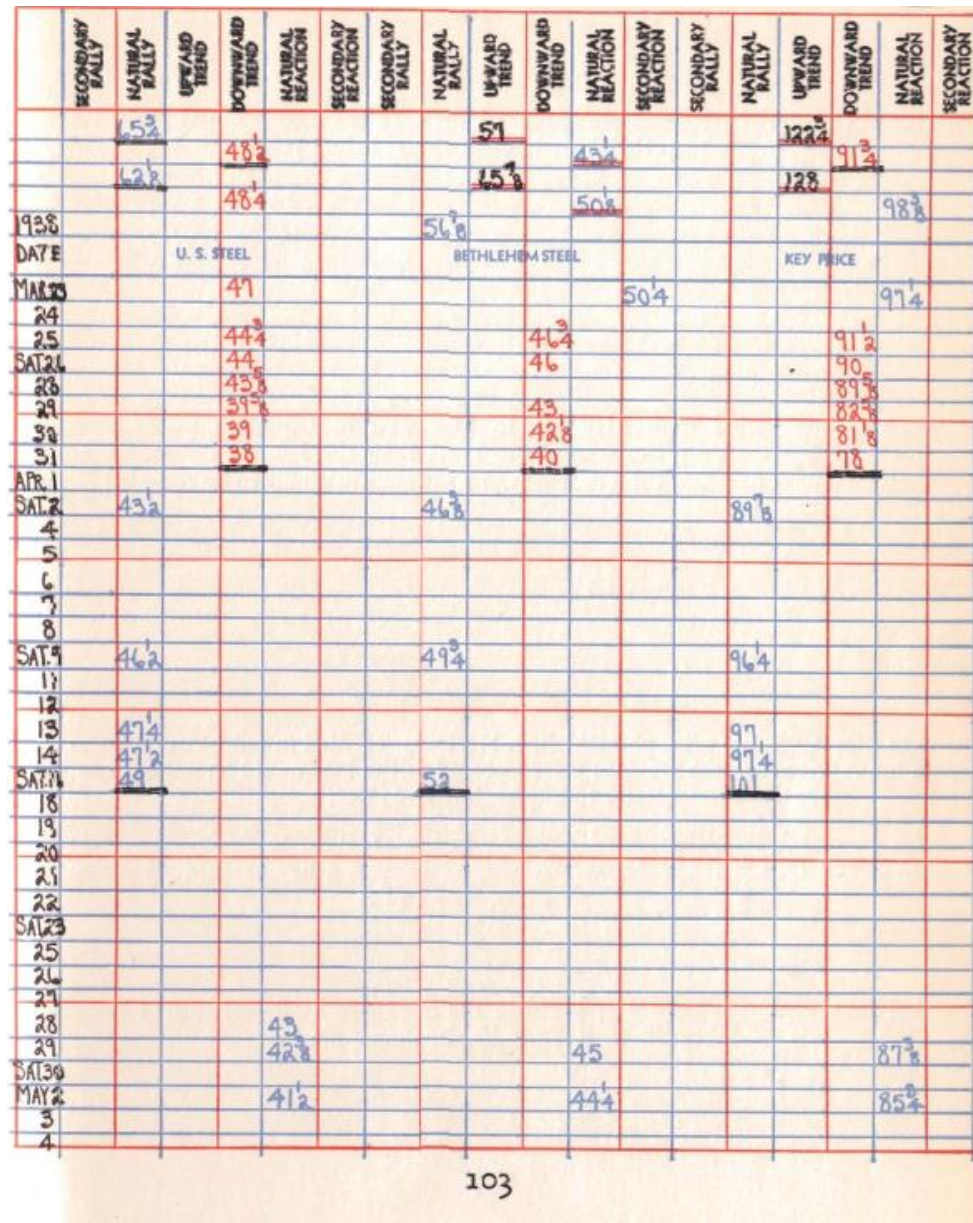 SECONDARY RALLY NATURAL RALLY UPWARD TREND DOWNWARD TREND NATURAL REACTION SECONDARY REACTION SECONDARY RALLY NATURAL RALLY UPWARD TREND DOWNWARD TREND NATURAL REACTION SECONDARY REACTION SECONDARY RALLY NATURAL RALLY UPWARD TREND DOWNWARD TREND NATURAL REACTION SECONDARY REACTION
65 3/4 57 122 7/8
48 1/2 43 1/4 91 3/4
62 1/8 65 7/8 128
48 1/4 50 1/8 98 3/8
1938 56 7/8
DATE U. S. STEEL BETHLEHEM STEEL KEY PRICE
MAR.23 47 50 1/4 97 1/4
24
25 44 3/4 46 3/4 91 1/2
SAT.26 44 46 90
28 43 5/8 89 5/8
29 39 5/8 43 82 5/8
30 39 42 1/8 81 1/8
31 38 40 78
APR.1
SAT.2 43 1/2 46 3/8 89 7/8
4
5
6
7
8
SAT.9 46 1/2 49 3/4 96 1/4
11
12
13 47 1/4 97
14 47 1/2 97 1/4
SAT.16 49 52 101
18
19
20
21
22
SAT.23
25
26
27
28 43
29 42 3/8 45 87 3/8
SAT.30
MAY 2 41 1/2 44 1/4 85 3/4
3
4
103